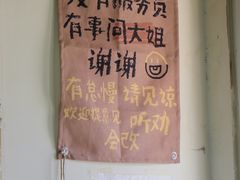 没有服务员
有事问大姐
谢谢
有怠慢请见谅
欢迎提意见 听劝
会改